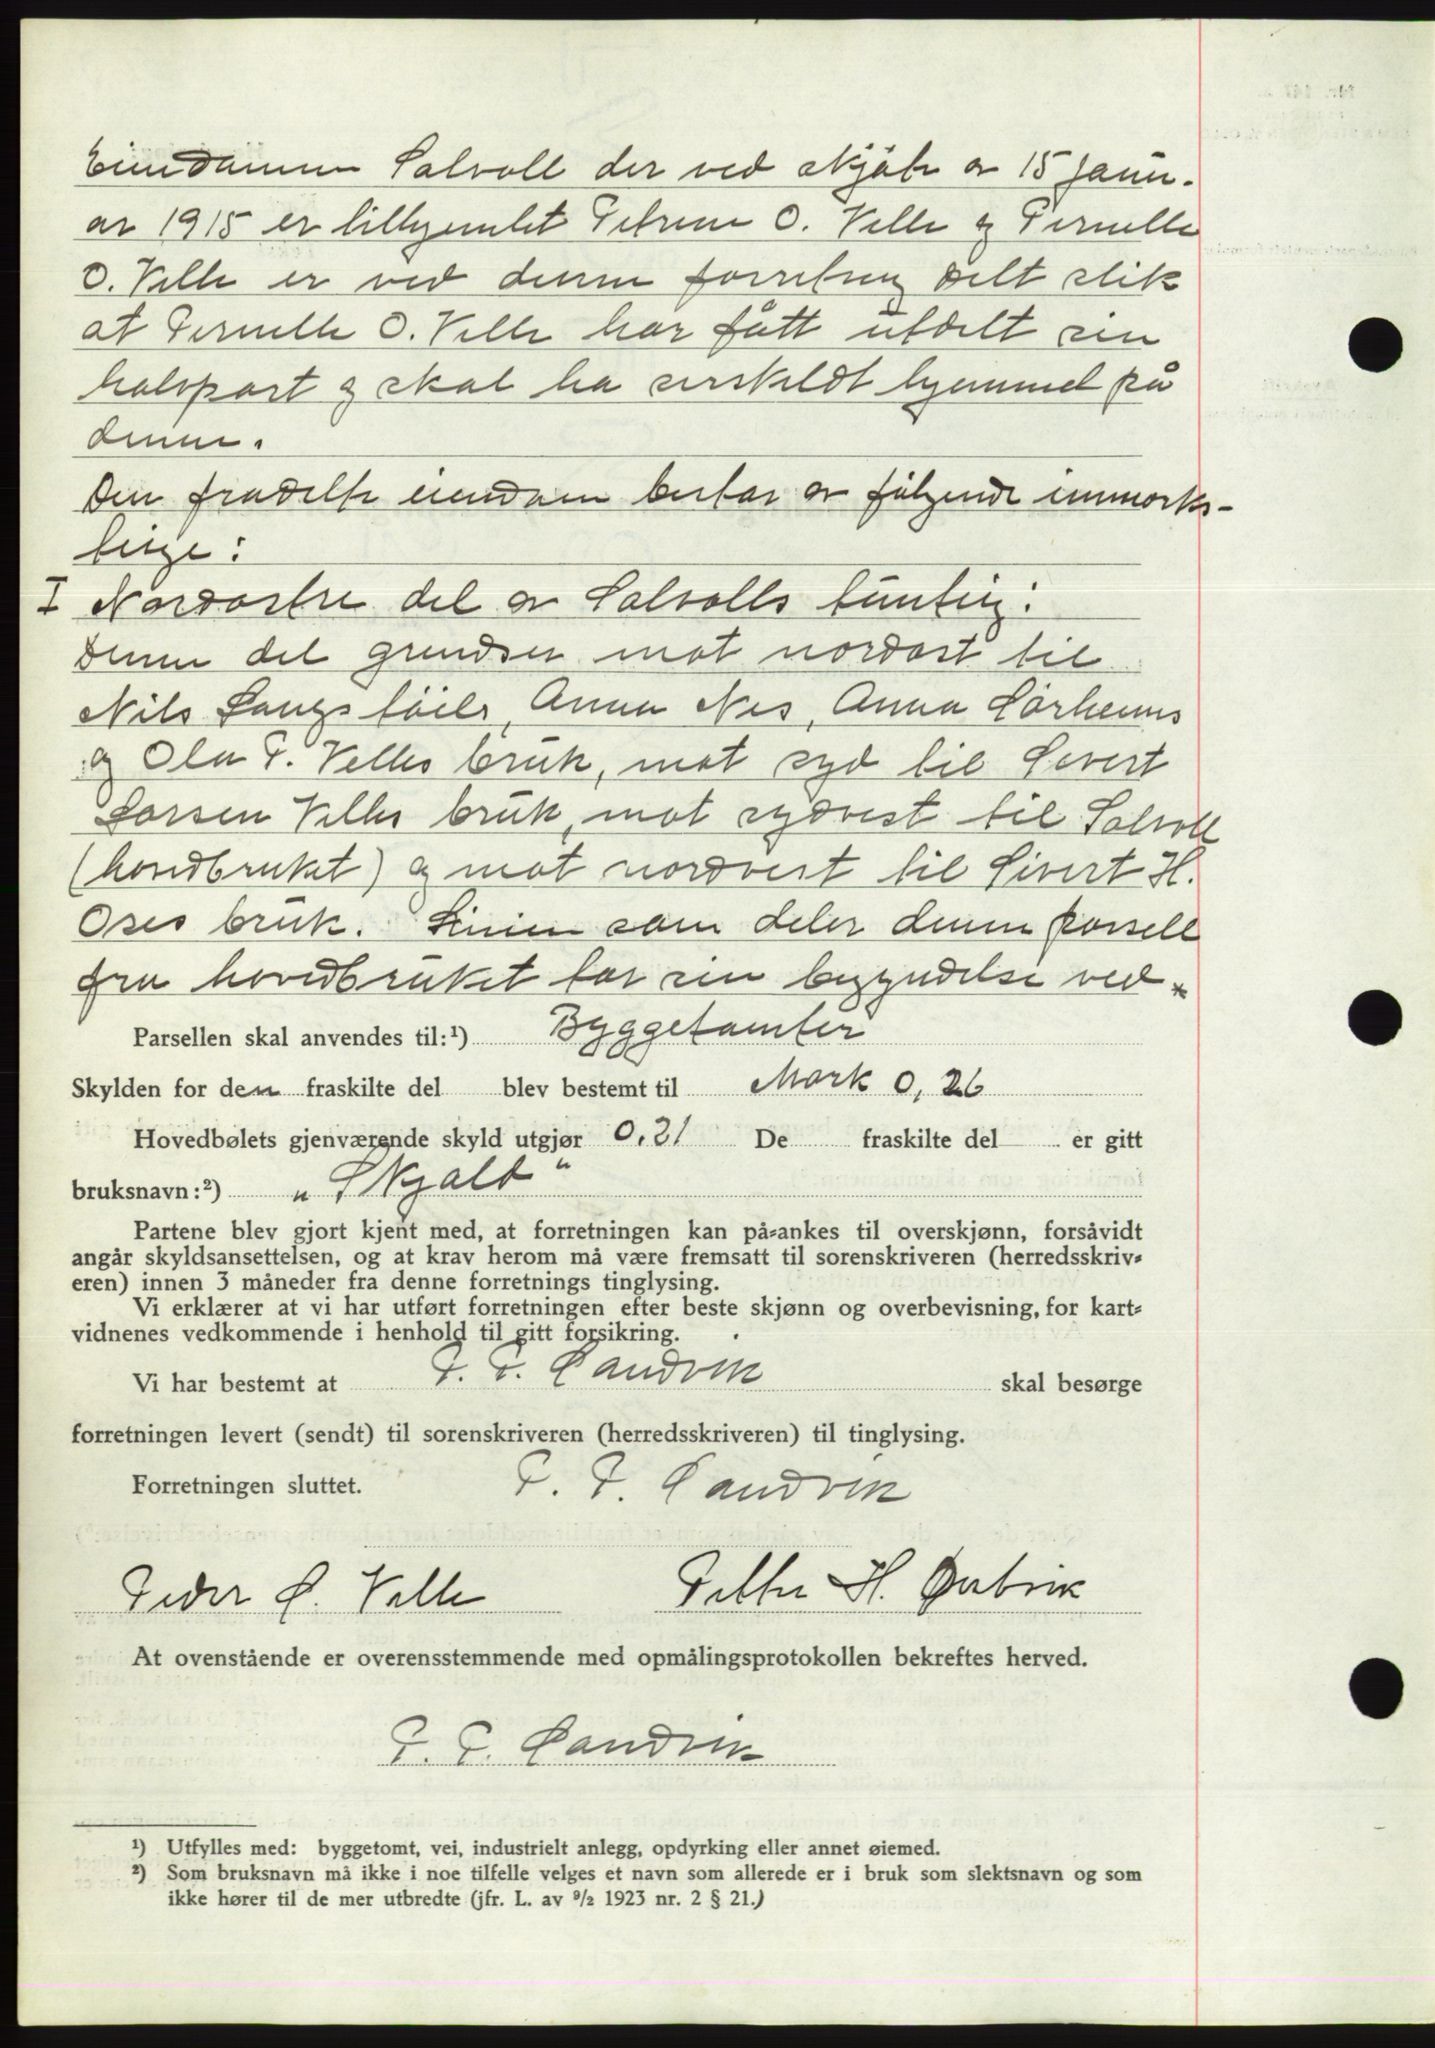 Eiendommen Solvoll der ved skjøte av 15 janu-
ar 1915 er tilhjemlet Petrine O. Velle og Pernille
O. Velle er ved denne forretning delt slik
at Pernille O. Velle har fått utdelt sin
halvpart og skal ha serskildt hjemmel på
denne.
Den fradelte eiendom bestar av følgende innmarks-
teige:
I Nordostre del av Solvolls tunteig:
Denne del grendser mot nordost til
Nils Langsløils, Anna Nes, Anna Sørheims
og Ola P. Velles bruk, mot syd til Severt
Larsen Velles bruk, mot sydvest til Solvoll
(hovedbruket) og mot nordvest til Sivert H.
Oses bruk. Linien som deler denne parsell
fra hovedbruket tar sin begyndelse ved *
Parsellen skal anvendes til:¹) Byggetomter
Skylden for den fraskilte del blev bestemt til Mark 0,26
Hovedbølets gjenværende skyld utgjør 0,21 De fraskilte del er gitt
bruksnavn:²) „Skjald"
Partene blev gjort kjent med, at forretningen kan på-ankes til overskjønn, forsåvidt
angår skyldsansettelsen, og at krav herom må være fremsatt til sorenskriveren (herredsskriv-
eren) innen 3 måneder fra denne forretnings tinglysing.
Vi erklærer at vi har utført forretningen efter beste skjønn og overbevisning, for kart-
vidnenes vedkommende i henhold til gitt forsikring.
Vi har bestemt at P. P. Sandvik skal besørge
forretningen levert (sendt) til sorenskriveren (herredsskriveren) til tinglysing.
Forretningen sluttet. P. P. Sandvik
Peder O. Velle Petter H. Ørstvik
At ovenstående er overensstemmende med opmålingsprotokollen bekreftes herved.
P. P. Sandvik
¹) Utfylles med: byggetomt, vei, industrielt anlegg, opdyrking eller annet øiemed.
²) Som bruksnavn må ikke i noe tilfelle velges et navn som allerede er i bruk som slektsnavn og som
ikke hører til de mer utbredte (jfr. L. av ⁹/₂ 1923 nr. 2 § 21.)